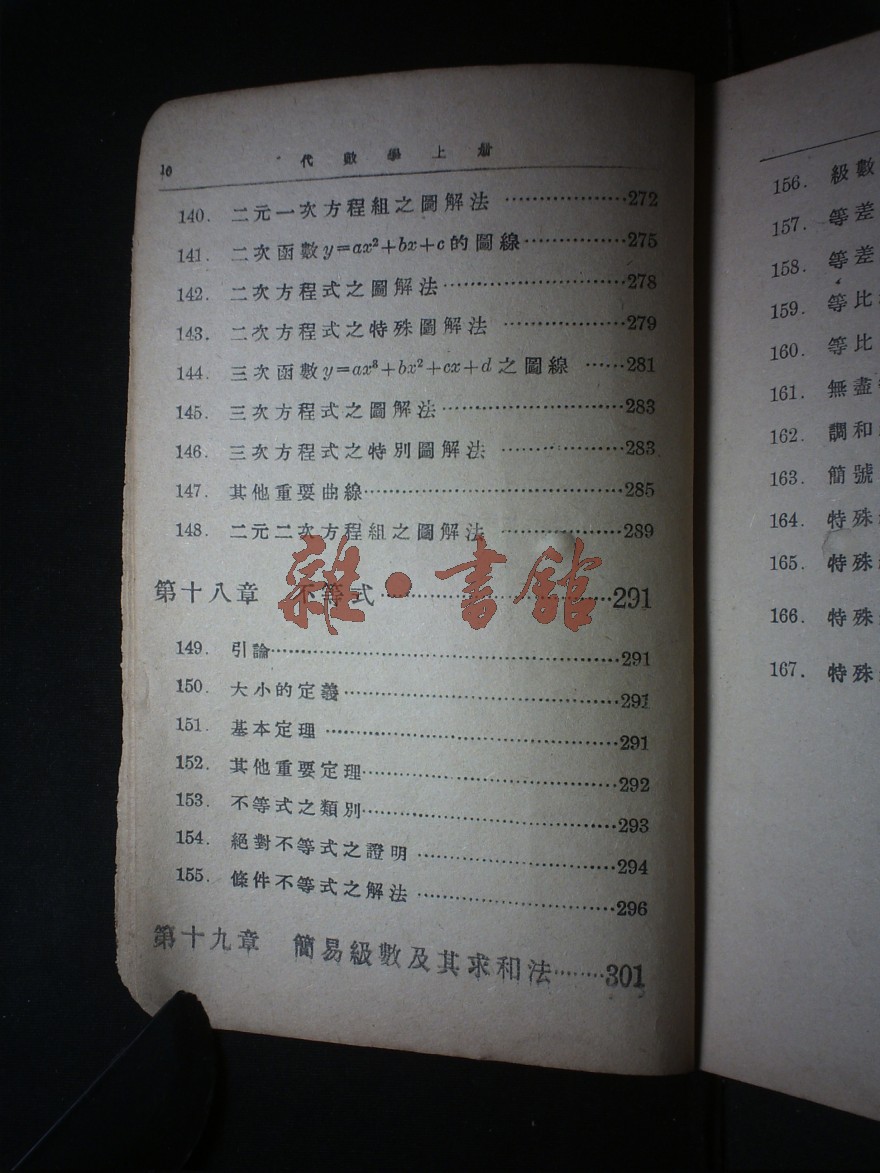 10 代數學上册
140. 二元一次方程組之圖解法 ………………272
141. 二次函數 y=ax²+bx+c 的圖線……………275
142. 二次方程式之圖解法………………………278
143. 二次方程式之特殊圖解法 ………………279
144. 三次函數 y=ax³+bx²+cx+d 之圖線 ……281
145. 三次方程式之圖解法………………………283
146. 三次方程式之特別圖解法 ………………283
147. 其他重要曲線………………………………285
148. 二元二次方程組之圖解法 ………………289
第十八章 不等式………………………291
149. 引論…………………………………………291
150. 大小的定義…………………………………291
151. 基本定理 ……………………………………291
152. 其他重要定理………………………………292
153. 不等式之類別………………………………293
154. 絕對不等式之證明 ………………………294
155. 條件不等式之解法 ………………………296
第十九章 簡易級數及其求和法………301
雜·書館
156. 級數
157. 等差
158. 等差
159. 等比
160. 等比
161. 無盡
162. 調和
163. 簡號
164. 特殊
165. 特殊
166. 特殊
167. 特殊